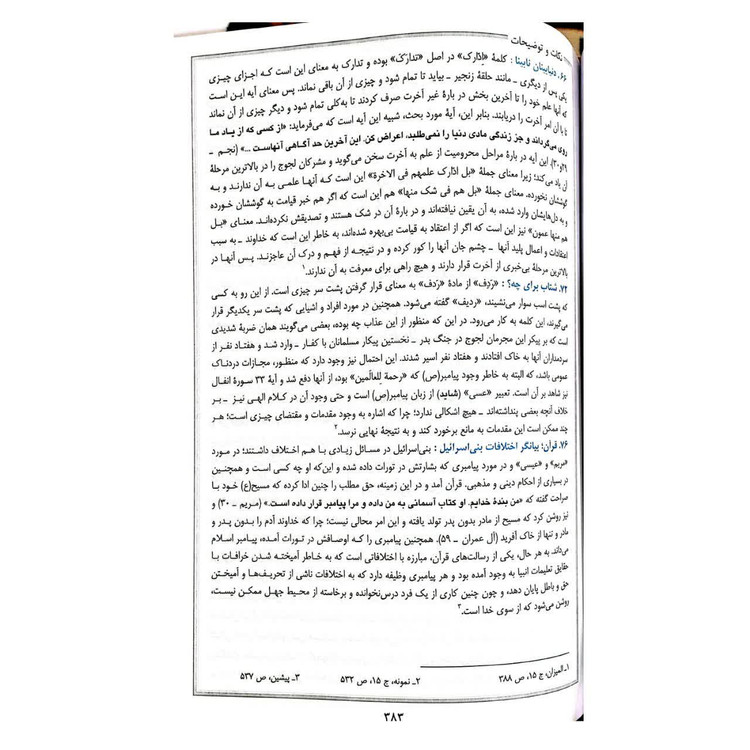 نکات و توضیحات
۶۶. دنیابینان نابینا : کلمهٔ «ادّارک» در اصل «تدارَکَ» بوده و تدارک به معنای این است که اجزای چیزی
یکی پس از دیگری ـ مانند حلقهٔ زنجیر ـ بیاید تا تمام شود و چیزی از آن باقی نماند. پس معنای آیه این است
که آنها علم خود را تا آخرین بخش در بارهٔ غیر آخرت صرف کردند تا به‌کلی تمام شود و دیگر چیزی از آن نماند
تا با آن امر آخرت را دریابند. بنابر این، آیهٔ مورد بحث، شبیه این آیه است که می‌فرماید: «از کسی که از یاد ما
روی می‌گرداند و جز زندگی مادی دنیا را نمی‌طلبد، اعراض کن. این آخرین حد آگاهی آنهاست ...» (نجم ـ
۲۹و۳۰). این آیه در بارهٔ مراحل محرومیت از علم به آخرت سخن می‌گوید و مشرکان لجوج را در بالاترین مرحلهٔ
آن یاد می‌کند؛ زیرا معنای جملهٔ «بل ادّارک علمهم فی الآخرة» این است که آنها علمی به آن ندارند و به
گوششان نخورده. معنای جملهٔ «بل هم فی شک منها» هم این است که اگر هم خبر قیامت به گوششان خورده
و به دل‌هایشان وارد شده، به آن یقین نیافته‌اند و در بارهٔ آن در شک هستند و تصدیقش نکرده‌اند. معنای «بل
هم منها عمون» نیز این است که اگر از اعتقاد به قیامت بی‌بهره شده‌اند، به خاطر این است که خداوند ـ به سبب
اعتقادات و اعمال پلید آنها ـ چشم جان آنها را کور کرده و در نتیجه از فهم و درک آن عاجزند. پس آنها در
بالاترین مرحلهٔ بی‌خبری از آخرت قرار دارند و هیچ راهی برای معرفت به آن ندارند.۱
۷۲. شتاب برای چه؟ : «رَدِفَ» از مادهٔ «رَدْف» به معنای قرار گرفتن پشت سر چیزی است. از این رو به کسی
که پشت اسب سوار می‌نشیند، «ردیف» گفته می‌شود. همچنین در مورد افراد و اشیایی که پشت سر یکدیگر قرار
می‌گیرند، این کلمه به کار می‌رود. در این که منظور از این عذاب چه بوده، بعضی می‌گویند همان ضربهٔ شدیدی
است که بر پیکر این مجرمان لجوج در جنگ بدر ـ نخستین پیکار مسلمانان با کفار ـ وارد شد و هفتاد نفر از
سردمداران آنها به خاک افتادند و هفتاد نفر اسیر شدند. این احتمال نیز وجود دارد که منظور، مجازات دردناک
عمومی باشد، که البته به خاطر وجود پیامبر(ص) که «رحمة للعالمین» بود، از آنها دفع شد و آیهٔ ۳۳ سورهٔ انفال
نیز شاهد بر آن است. تعبیر «عسی» (شاید) از زبان پیامبر(ص) است و حتی وجود آن در کلام الهی نیز ـ بر
خلاف آنچه بعضی پنداشته‌اند ـ هیچ اشکالی ندارد؛ چرا که اشاره به وجود مقدمات و مقتضای چیزی است؛ هر
چند ممکن است این مقدمات به مانع برخورد کند و به نتیجهٔ نهایی نرسد.۲
۷۶. قرآن؛ بیانگر اختلافات بنی‌اسرائیل : بنی‌اسرائیل در مسائل زیادی با هم اختلاف داشتند؛ در مورد
«مریم» و «عیسی» و در مورد پیامبری که بشارتش در تورات داده شده و این‌که او چه کسی است و همچنین
در بسیاری از احکام دینی و مذهبی. قرآن آمد و در این زمینه، حق مطلب را چنین ادا کرده که مسیح(ع) خود با
صراحت گفته که «من بندهٔ خدایم. او کتاب آسمانی به من داده و مرا پیامبر قرار داده است.» (مریم ـ ۳۰) و
نیز روشن کرد که مسیح از مادر بدون پدر تولد یافته و این امر محالی نیست؛ چرا که خداوند آدم را بدون پدر و
مادر و تنها از خاک آفرید (آل عمران ـ ۵۹). همچنین پیامبری را که اوصافش در تورات آمده، پیامبر اسلام
می‌داند. به هر حال، یکی از رسالت‌های قرآن، مبارزه با اختلافاتی است که به خاطر آمیخته شدن خرافات با
حقایق تعلیمات انبیا به وجود آمده بود و هر پیامبری وظیفه دارد که به اختلافات ناشی از تحریف‌ها و آمیختن
حق و باطل پایان دهد، و چون چنین کاری از یک فرد درس‌نخوانده و برخاسته از محیط جهل ممکن نیست،
روشن می‌شود که از سوی خدا است.۳
۱ـ المیزان، ج ۱۵، ص ۳۸۸ ۲ـ نمونه، ج ۱۵، ص ۵۳۲ ۳ـ پیشین، ص ۵۳۷
۳۸۳